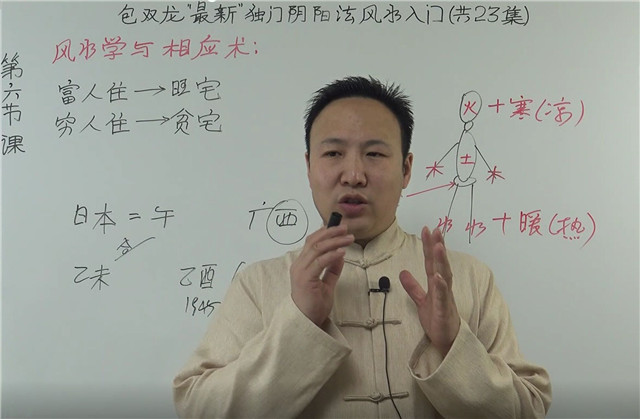 包双龙"最新"独门阴阳法风水入门(共23集)
第六节课
风水学与相应术:
富人住→旺宅
穷人住→贫宅
日本=午
乙未
广西
乙酉(
1945
火+寒(凉)
土
木 木
水 水+暖(热)